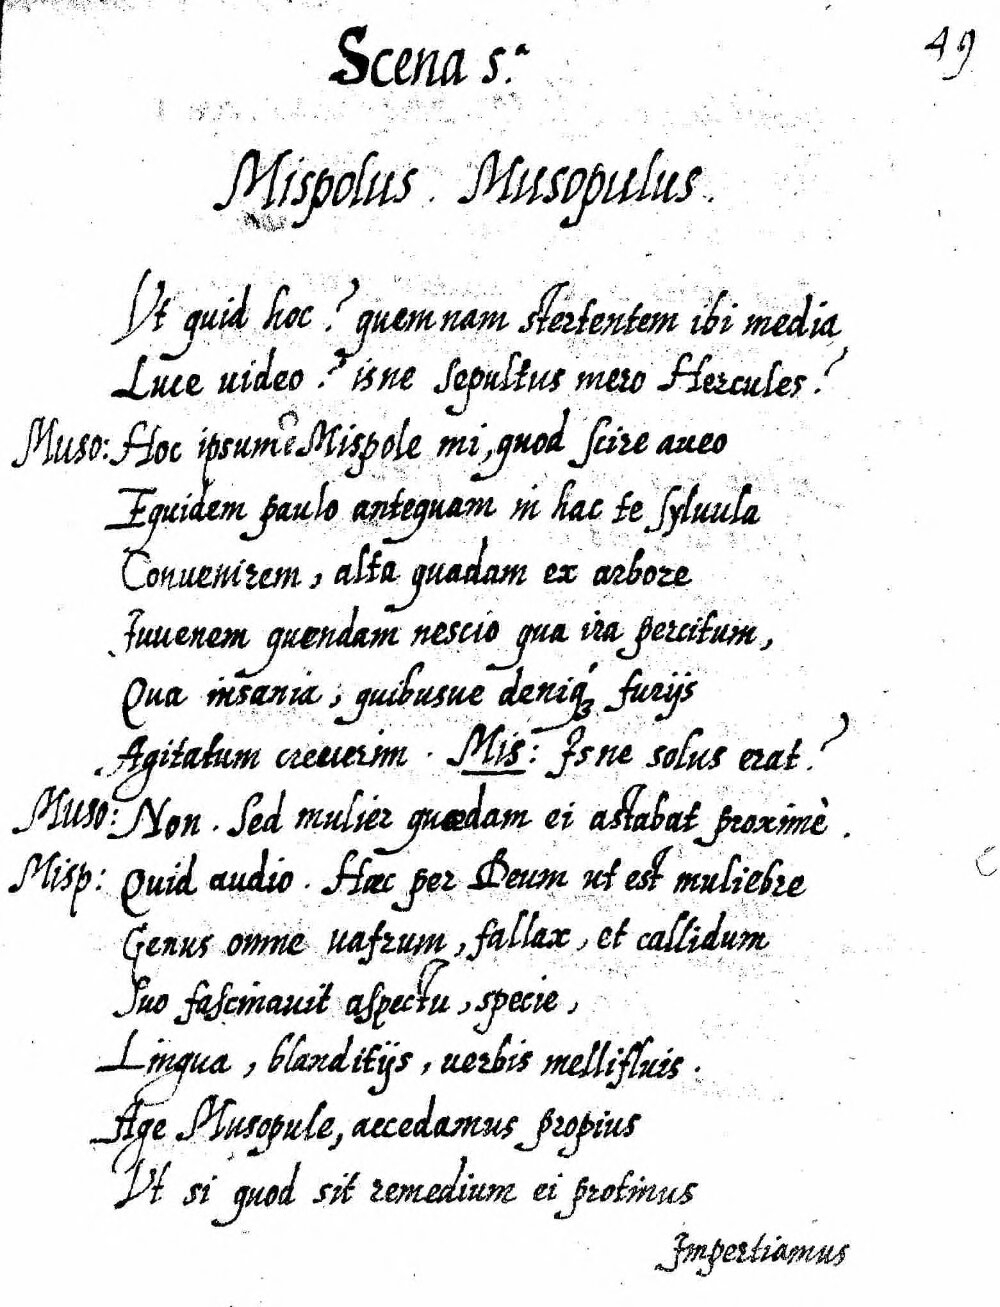 49
Scena 5.ª
Mispolus. Musopulus.
Vt quid hoc? quemnam stertentem ibi media
Luce uideo? isne sepultus mero Hercules?
Muso: Hoc ipsum è Mispole mi, quod scire aueo
Equidem paulo antequam in hac te syluula
Conuenirem, alta quadam ex arbore
Juuenem quendam nescio qua ira percitum,
Qua insania, quibusue deniq3 furijs
Agitatum creuerim. Mis: Isne solus erat?
Muso: Non. Sed mulier quædam ei astabat proximè.
Misp: Quid audio. Hæc per Deum ut est muliebre
Genus omne uafrum, fallax, et callidum
Suo fascinauit aspectu, specie,
Lingua, blanditijs, uerbis mellifluis.
Age Musopule, accedamus propius
Vt si quod sit remedium ei protinus
Impertiamus